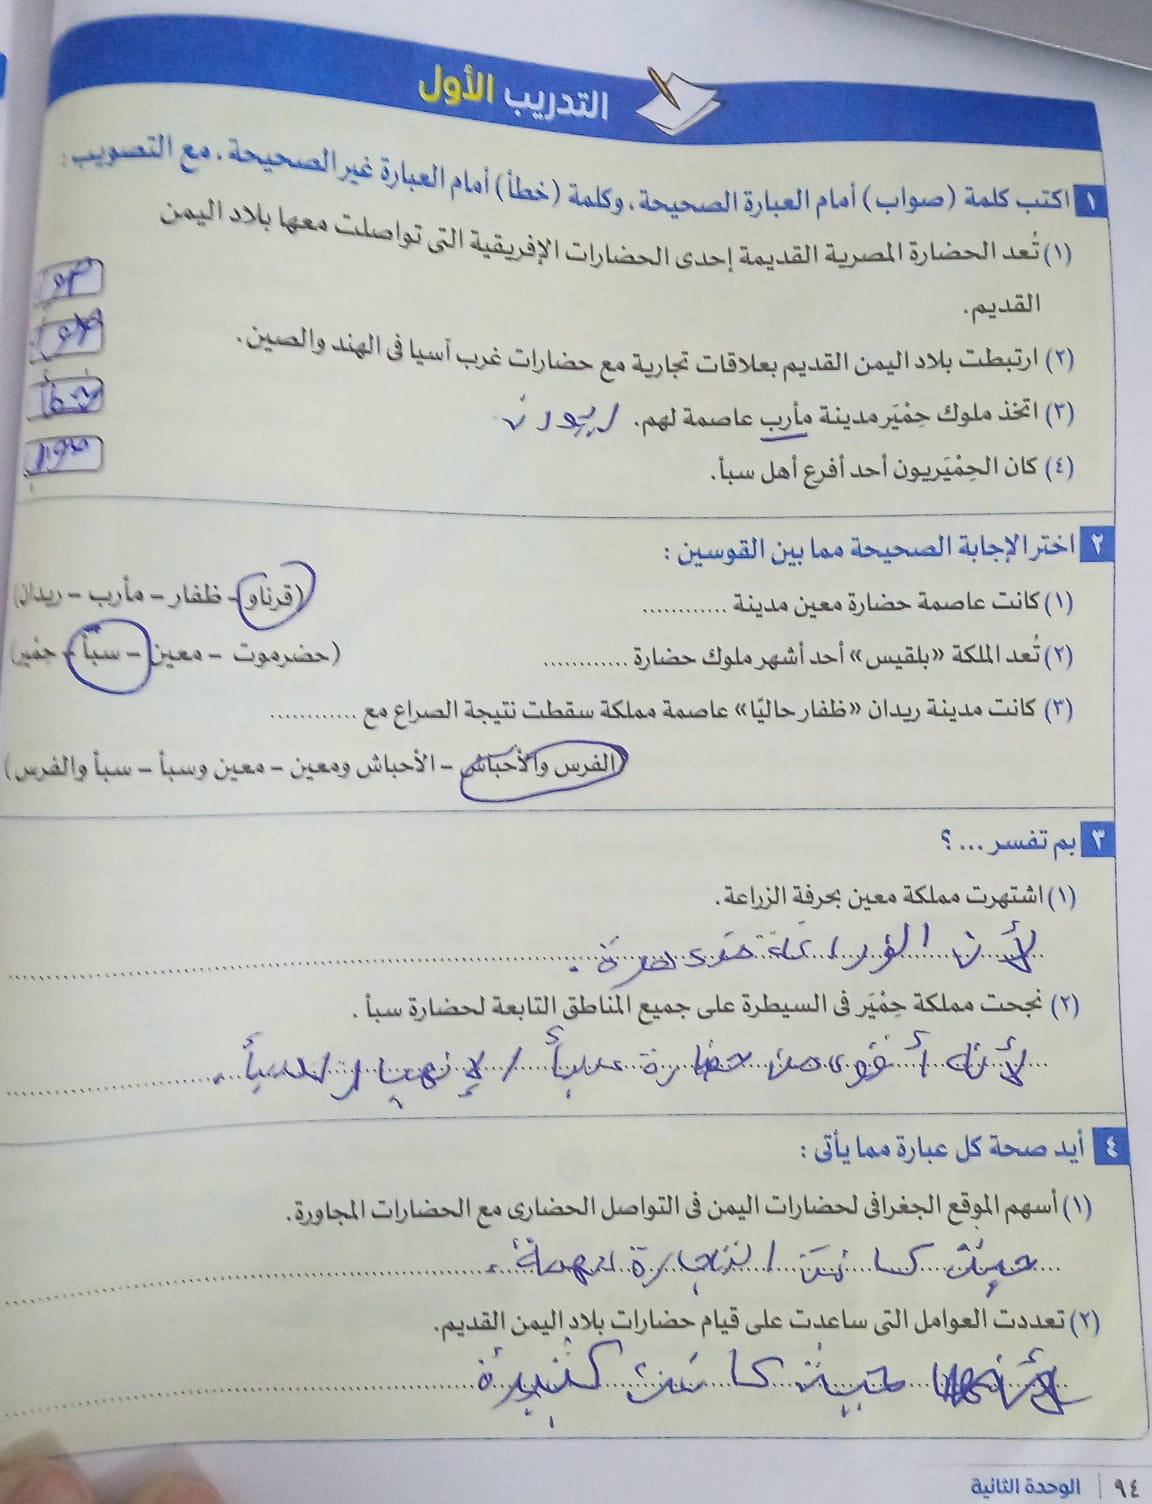 التدريب الأول
١ اكتب كلمة (صواب) أمام العبارة الصحيحة، وكلمة (خطأ) أمام العبارة غير الصحيحة، مع التصويب:
(١) تُعد الحضارة المصرية القديمة إحدى الحضارات الإفريقية التى تواصلت معها بلاد اليمن
القديم.
(٢) ارتبطت بلاد اليمن القديم بعلاقات تجارية مع حضارات غرب آسيا فى الهند والصين.
(٣) اتخذ ملوك حِمْيَر مدينة مأرب عاصمة لهم.
خطأ
(٤) كان الحِمْيَريون أحد أفرع أهل سبأ.
٢ اختر الإجابة الصحيحة مما بين القوسين:
(١) كانت عاصمة حضارة معين مدينة ............ (قرناو - ظفار - مأرب - ريدان)
(٢) تُعد الملكة «بلقيس» أحد أشهر ملوك حضارة ............ (حضرموت - معين - سبأ - حِمْير)
(٣) كانت مدينة ريدان «ظفار حاليًا» عاصمة مملكة سقطت نتيجة الصراع مع ............
(الفرس والأحباش - الأحباش ومعين - معين وسبأ - سبأ والفرس)
٣ بم تفسر ... ؟
(١) اشتهرت مملكة معين بحرفة الزراعة.
لأن
(٢) نجحت مملكة حِمْيَر فى السيطرة على جميع المناطق التابعة لحضارة سبأ.
لأنه أقوى من حضارة سبأ / لإنهيار
٤ أيد صحة كل عبارة مما يأتى:
(١) أسهم الموقع الجغرافى لحضارات اليمن فى التواصل الحضارى مع الحضارات المجاورة.
حيث كانت التجارة مهمة.
(٢) تعددت العوامل التى ساعدت على قيام حضارات بلاد اليمن القديم.
حيث كانت كثيرة
٩٤ | الوحدة الثانية